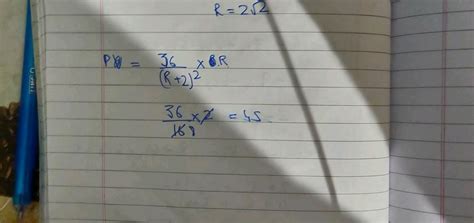 R = 2√2
P = 36/(R+2)² × R
36/16 8 × 2 = 4.5